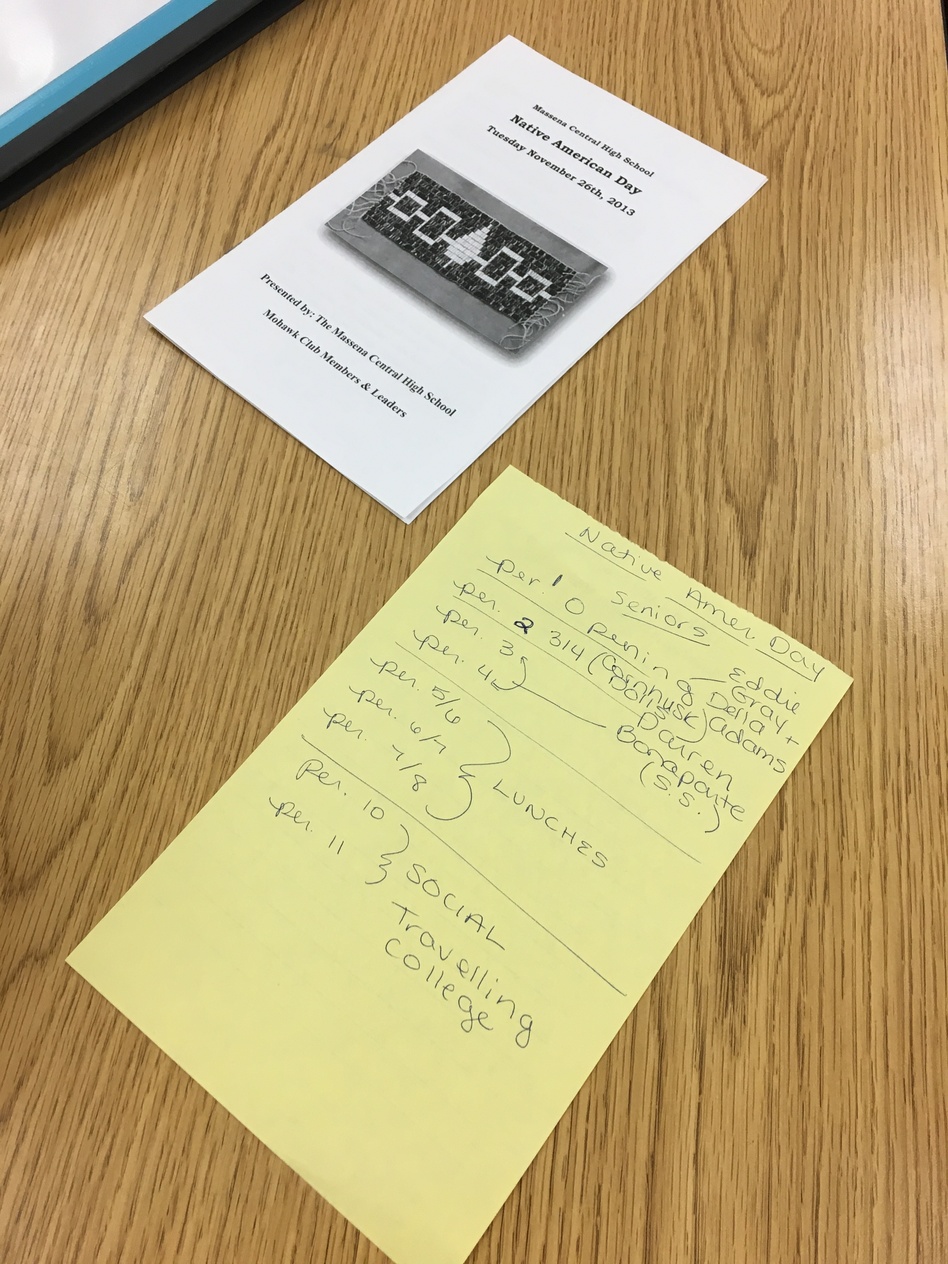 Massena Central High School
Native American Day
Tuesday November 26th, 2013
Presented by: The Massena Central High School
Mohawk Club Members & Leaders
Native Amer. Day
Seniors
per. 1 Opening - Eddie Gray
per. 2 314 (Cornhusk Dolls) Della + Adams
per. 3
per. 4
Darren
Bonaparte
(S.S.)
per. 5/6
per. 6/7
per. 7/8
LUNCHES
per. 10
per. 11
SOCIAL
Travelling
College